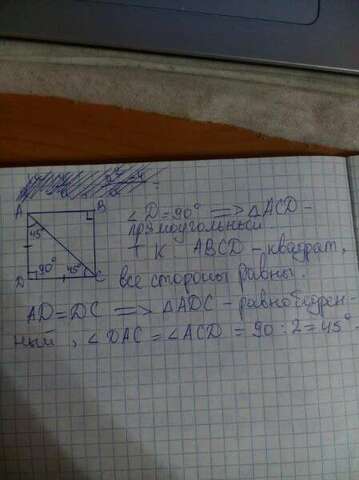 A B
45°
∠D=90° => △ACD-
прямоугольный
т к ABCD - квадрат,
90° 45°
D C
все стороны равны.
AD=DC => △ADC - равнобедрен-
ный, ∠DAC = ∠ACD = 90:2=45°